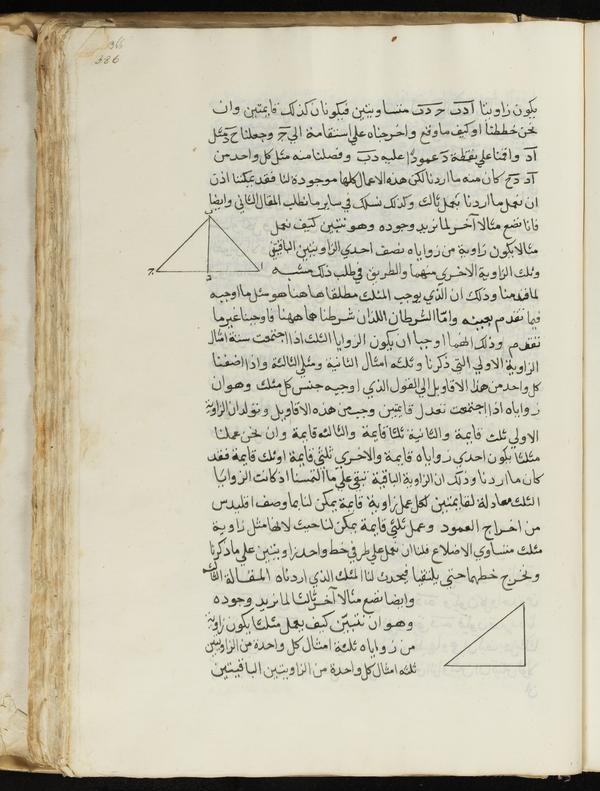 366
386
يكون زاويتا ادب حدب متساويتين فيكونان كذلك قايمتين وان
نحن خططنا او كيف ما وقع واخرجناه على استقامة الى ح وجعلنا ح د مثل
اد واقمنا على نقطة د عمودا عليه دب وفصلنا منه مثل كل واحد من
اد دح كان منه ما اردنا لكن هذه الاعمال كلها موجودة لنا فقد يمكننا اذن
ان نعمل ما اردنا بعمل ثالث وكذلك نسلك في ساير ما نطلب المقال الثاني وايضا
فانا نضع مثالا آخر لما نريد وجوده وهو نتبين كيف نعمل
مثلثا يكون زاوية من زواياه نصف احدى الزاويتين الباقيتين
وثلث الزاوية الاخرى منهما والطريق في طلب ذلك شبيه
لما قدمنا وذلك ان الذي يوجب المثلث مطلقا هاهنا هو مثل ما اوجبه
فيما تقدم بعينه واما الشرطان اللذان شرطنا هاهنا فاوجبنا غير ما
تقدم وذلك انهما اوجبا ان يكون الزوايا الثلث اذا اجتمعت ستة امثال
الزاوية الاولى التي ذكرنا وثلثة امثال الثانية ومثلي الثالثة واذا اضفنا
كل واحد من هذا الاقاويل الى القول الذي اوجبه جنس كل مثلث وهو ان
زواياه اذا اجتمعت تعدل قايمتين وجب من هذه الاقاويل وتولد ان الزاوية
الاولى ثلث قايمة والثانية ثلثا قايمة والثالثة قايمة وان نحن عملنا
مثلثا يكون احدى زواياه قايمة والاخرى ثلثي قايمة او ثلث قايمة فقد
كان ما اردنا وذلك ان الزاوية الباقية تبقى على ما التمسنا اذ كانت الزوايا
الثلث معادلة لقايمتين لكل عمل زاوية قايمة يمكن لنا بما وصف اقليدس
من اخراج العمود وعمل ثلثي قايمة يمكن لنا حيث لانها مثل زاوية
مثلث متساوي الاضلاع فلنا ان نعمل على طرفي خط واحد زاويتين على ما ذكرنا
ونخرج خطيهما حتى يلتقيا فيحدث لنا المثلث الذي اردناه المقالة الثالث
وايضا نضع مثالا آخر ثالثا لما نريد وجوده
وهو ان نتبين كيف يعمل مثلثا يكون زاوية
من زواياه ثلثة امثال كل واحدة من الزاويتين
ثلثه امثال كل واحدة من الزاويتين الباقيتين